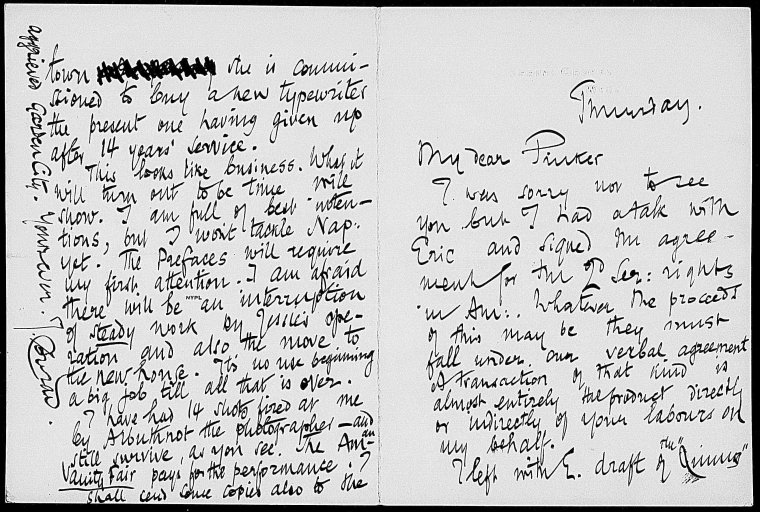 Thursday.
My dear Pinker
I was sorry not to see
you but I had a talk with
Eric and signed the agree-
ment for the 2d Ser: rights
in Am:. Whatever the proceeds
of this may be they must
fall under our verbal agreement
A transaction of that kind is
almost entirely the product directly
or indirectly of your labours on
my behalf.
I left with E. draft of the "
town she is commis-
sioned to buy a new typewriter
the present one having given up
after 14 years' service.
This looks like business. What it
will turn out to be time will
show. I am full of best inten-
tions, but I won't tackle Nap.
yet. The Prefaces will require
my first attention. I am afraid
there will be an interruption
NYPL
of steady work by Jessie's ope-
ration and also the move to
the new house. It's no use beginning
a big job till all that is over.
I have had 14 shots fired at me
by Arbuthnot the photographer — and
still survive, as you see. The Am-an
Vanity Fair pays for the performance. I
shall send some copies also to the
aggrieved Garden City. Yours ever J. Conrad.